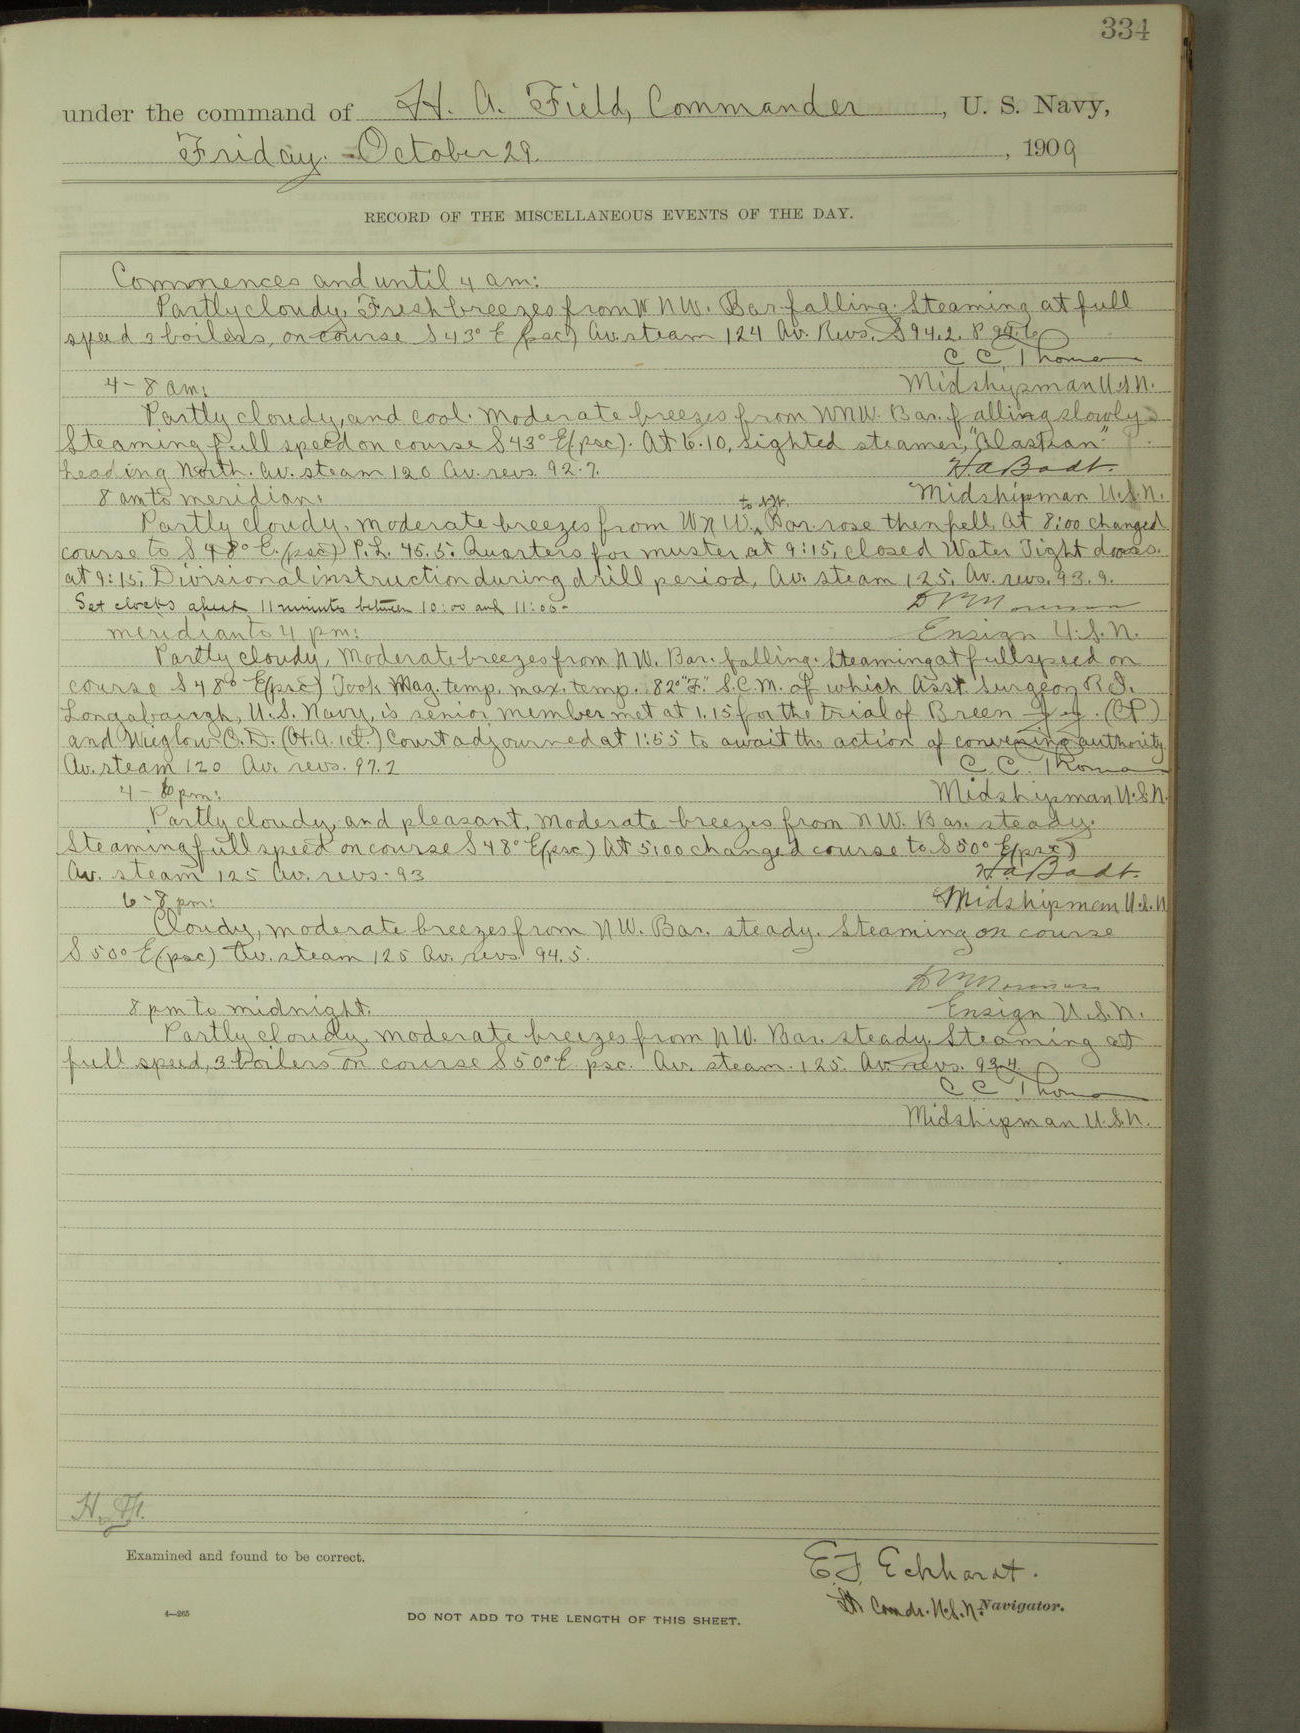 334
under the command of H. A. Field, Commander, U. S. Navy,
Friday. October 29, 1909
RECORD OF THE MISCELLANEOUS EVENTS OF THE DAY.
Commences and until 4 am:
Partly cloudy, Fresh breezes from WNW. Bar. falling. Steaming at full
speed 3 boilers, on course S 43° E (psc) Av. steam 124 Av. Revs. S 94.2. P 94.6
C C Thomas
4 - 8 am: Midshipman U.S.N.
Partly cloudy, and cool. Moderate breezes from WNW. Bar. falling slowly
Steaming full speed on course S 43° E (psc). At 6.10, sighted steamer, "Alaskan"
heading North. Av. steam 120 Av. revs. 92.7. H.A. Badt.
8 am to meridian: Midshipman U.S.N.
to NW.
Partly cloudy, moderate breezes from WNW. Bar. rose then fell. At 8:00 changed
course to S 48° E. (psc) P.L. 45.5. Quarters for muster at 9:15, closed Water Tight doors.
at 9:15; Divisional instruction during drill period, Av. steam 125. Av. revs. 93.9.
Set clocks ahead 11 minutes between 10:00 and 11:00-
meridian to 4 pm: Ensign U.S.N.
Partly cloudy, Moderate breezes from NW. Bar. falling. Steaming at full speed on
course S 48° E (psc) Took Mag. temp. max. temp. 82° "F." S.C.M. of which Asst. Surgeon R.I.
Longabaugh, U.S. Navy, is senior member met at 1.15 for the trial of Breen J. J. (CP.)
and C.D. (H.A. 1cl.) Court adjourned at 1:55 to await the action of convening authority.
Av. steam 120 Av. revs. 97.2 C. C. Thomas
4 - 6 pm: Midshipman U.S.N.
Partly cloudy, and pleasant, moderate breezes from NW. Bar. steady.
Steaming full speed on course S 48° E (psc) At 5:00 changed course to S 50° E (psc)
Av. steam 125 Av. revs. 93 H.A. Badt.
6 - 8 pm: Midshipman U.S.N
Cloudy, moderate breezes from NW. Bar. steady. Steaming on course
S 50° E (psc) Av. steam 125 Av. revs 94.5.
8 pm to midnight. Ensign U.S.N.
Partly cloudy, moderate breezes from NW. Bar. steady. Steaming at
full speed, 3 boilers on course S 50° E psc. Av. steam. 125. Av. revs. 93.4
C C Thomas
Midshipman U.S.N.
Examined and found to be correct.
E.F. Eckhardt.
Lt Comdr. U.S.N. Navigator.
4—265
DO NOT ADD TO THE LENGTH OF THIS SHEET.